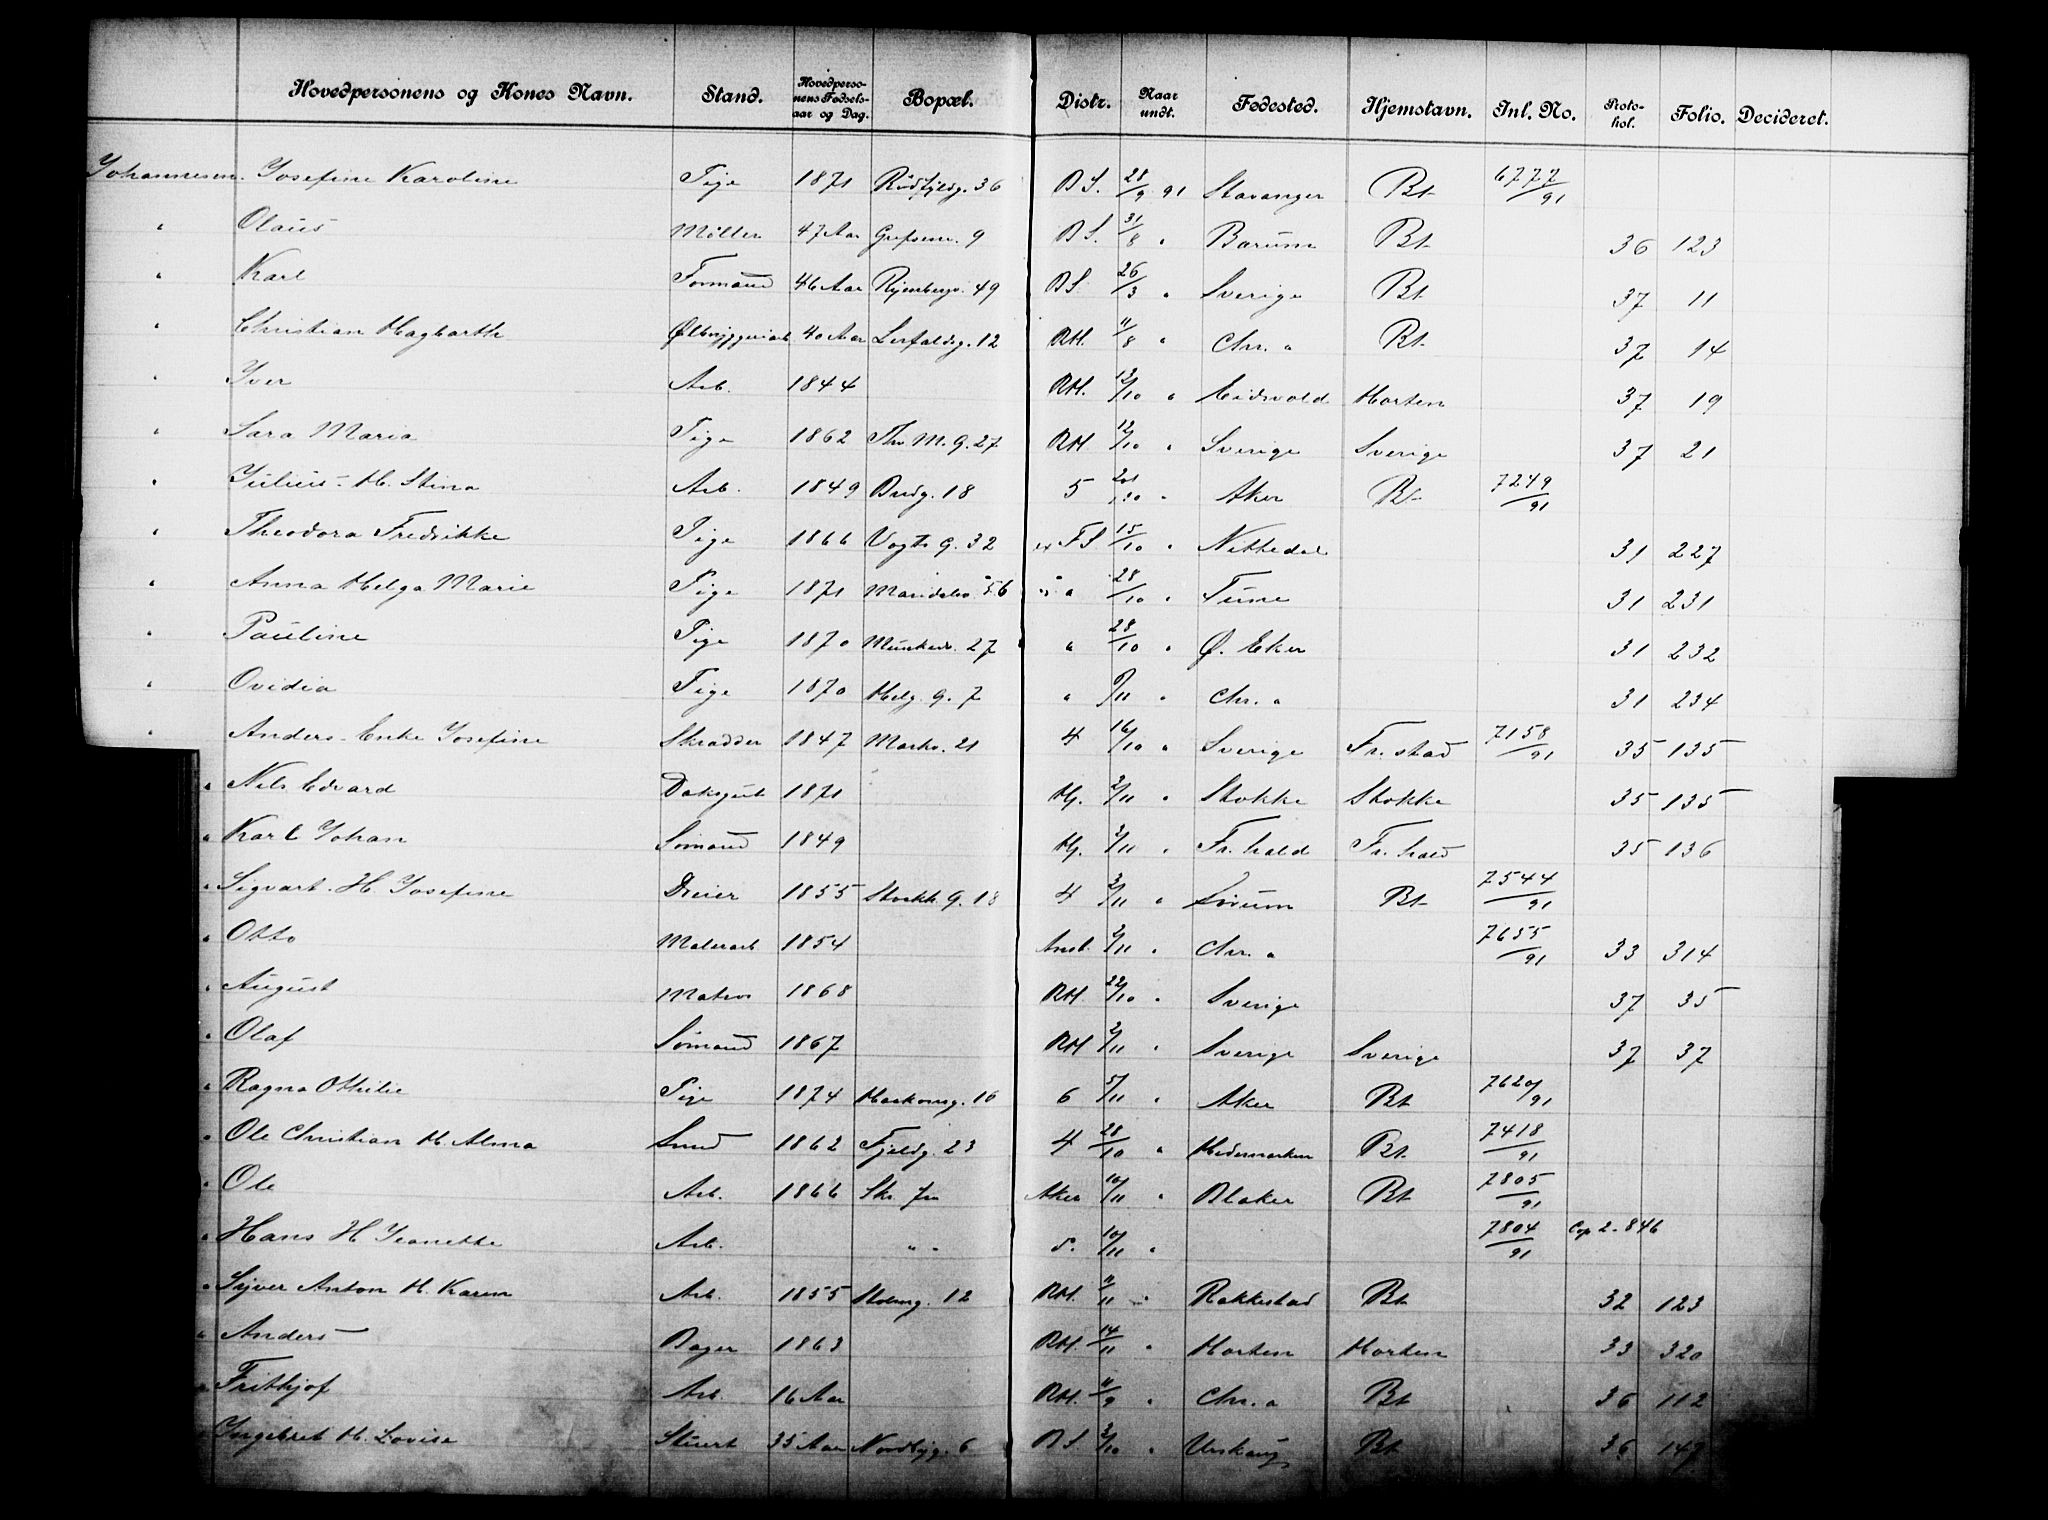 Hovedpersonens og Kones Navn. Stand. Hovedpersonens Fødselsaar og Dag. Bopæl. Distr. Naar undt. Fødested. Hjemstavn. Inl. No. Protokol. Folio. Decideret.
Johannesen. Josefine Karoline Pige 1871 36 B S. 28/9 91 Stavanger Bt 6777/91
" Olaus Møller 47 Aar Grefsenv. 9 B S. 31/8 " Bærum Bt 36 123
" Karl Formand 46 Aar Ryenbergv. 49 B S 26/3 " Sverige Bt 37 11
" Christian Hagbarth Ølbryggeriarb 40 Aar Lerfaldsg. 12 RH. 11/8 " Chr. a Bt 37 14
" Iver Arb. 1844 RH. 12/10 " Eidsvold Horten 37 19
" Sara Maria Pige 1862 Thv. M. G. 27 RH. 12/10 " Sverige Sverige 37 21
" Julius - H. Stina Arb. 1849 Bredg. 18 5 20/10 " Aker Bt 7249/91
" Theodora Fredrikke Pige 1866 Vogts G. 32 FS 15/10 " Nittedal 31 227
" Anna Helga Marie Pige 1871 Maridalsv 56 " 28/10 " Tune 31 231
" Pauline Pige 1870 Munkedv. 27 " 28/10 " Ø. Eker 31 232
" Ovidia Pige 1870 Helg. G. 7 " /11 " Chr. a 31 234
" Anders - Enke Josefine Skrædder 1847 Markv. 21 4 16/10 " Sverige Fr. stad 7158/91 35 135
" Nils Edvard Dæksgut 1871 Hj. 2/11 " Stokke Stokke 35 135
" Karl Johan Sømand 1849 Hj. 2/11 " Fr. hald Fr. hald 35 136
" Sigvart - H. Josefine Dreier 1855 Storkh G. 18 4 3/11 " Sørum Bt 7544/91
" Otto Malerarb 1854 Anst. 2/11 " Chr. a 7655/91 33 314
" August Matros 1868 RH. 22/10 " Sverige 37 35
" Olaf Sømand 1867 RH 2/11 " Sverige Sverige 37 37
" Ragna Othilie Pige 1874 Hackonsg. 16 6 5/11 " Aker Bt 7620/91
" Ole Christian H. Alma Smed 1862 Fjeldg. 23 4 28/10 " Hedemarken Bt 7418/91
" Ole Arb. 1866 Aker 10/11 " Blaker Bt 7805/91
" Hans H Jeanette Arb. " " d. 10/11 " 7804/91 Cop 2 - 846
" Syver Anton H. Karen Arb. 1855 Holmg. 12 RH. 11/11 " Rakkestad Bt 32 123
" Anders Bager 1863 RH. 14/11 " Horten Horten 33 320
" Frithjof Arb. 16 Aar RH. 11/9 " Chr. a Bt 36 112
" Ingebret H. Lovise Stuert 35 Aar Nordbyg. 6 B S 2/10 " Urskoug Bt 36 147